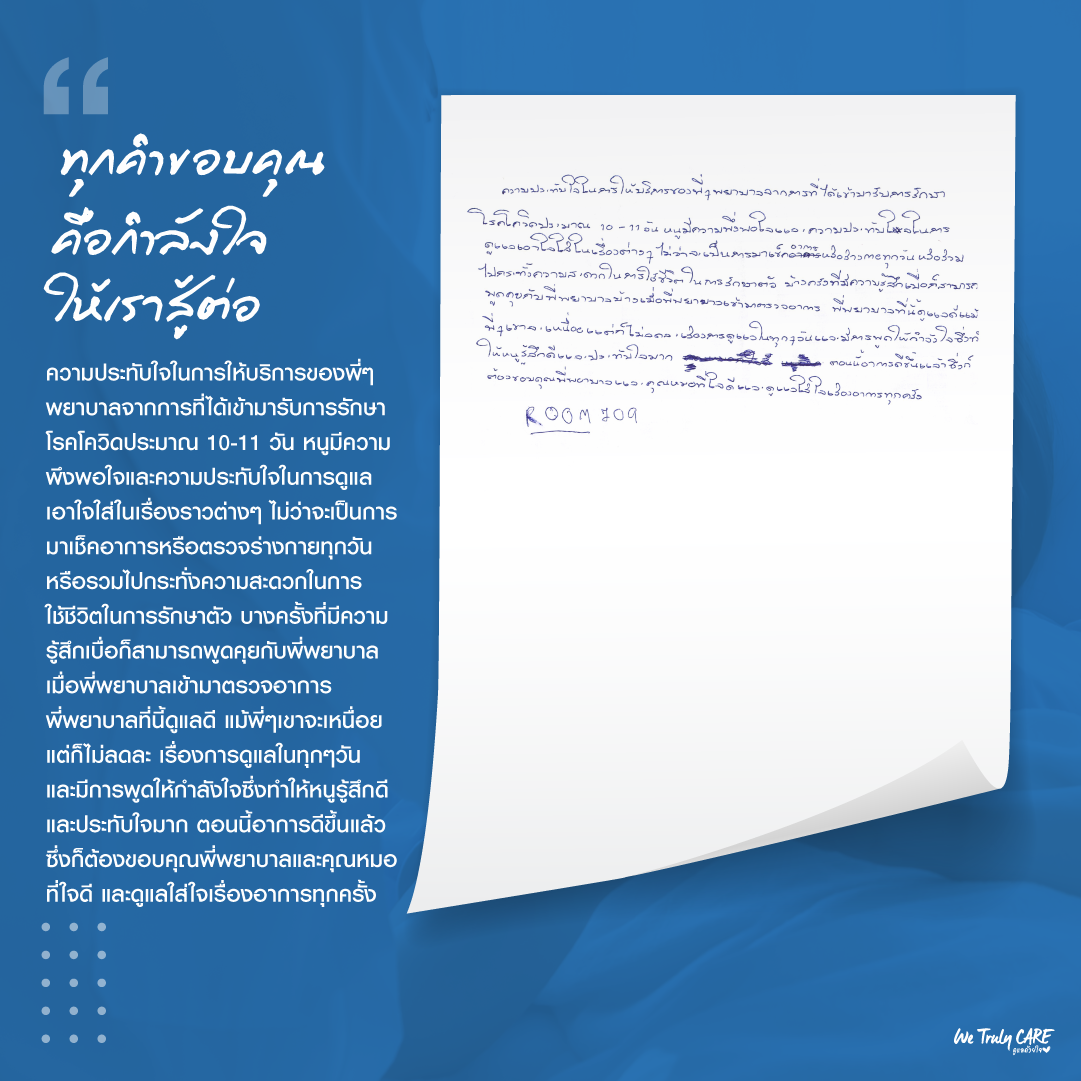 ทุกคำขอบคุณ
คือกำลังใจ
ให้เราสู้ต่อ
ความประทับใจในการให้บริการของพี่ๆ
พยาบาลจากการที่ได้เข้ามารับการรักษา
โรคโควิดประมาณ 10-11 วัน หนูมีความ
พึงพอใจและความประทับใจในการดูแล
เอาใจใส่ในเรื่องราวต่างๆ ไม่ว่าจะเป็นการ
มาเช็คอาการหรือตรวจร่างกายทุกวัน
หรือรวมไปกระทั่งความสะดวกในการ
ใช้ชีวิตในการรักษาตัว บางครั้งที่มีความ
รู้สึกเบื่อก็สามารถพูดคุยกับพี่พยาบาล
เมื่อพี่พยาบาลเข้ามาตรวจอาการ
พี่พยาบาลที่นี้ดูแลดี แม้พี่ๆเขาจะเหนื่อย
แต่ก็ไม่ลดละ เรื่องการดูแลในทุกๆวัน
และมีการพูดให้กำลังใจซึ่งทำให้หนูรู้สึกดี
และประทับใจมาก ตอนนี้อาการดีขึ้นแล้ว
ซึ่งก็ต้องขอบคุณพี่พยาบาลและคุณหมอ
ที่ใจดี และดูแลใส่ใจเรื่องอาการทุกครั้ง
ความประทับใจในการให้บริการของพี่ๆพยาบาลจากการที่ได้เข้ามารับการรักษา
โรคโควิดประมาณ 10 - 11 วัน หนูมีความพึงพอใจและความประทับใจในการ
ดูแลเอาใจใส่ในเรื่องต่างๆ ไม่ว่าจะเป็นการมาเช็คอาการหรือร่างกายทุกวัน หรือรวม
ไปกระทั่งความสะดวกในการใช้ชีวิตในการรักษาตัว บางครั้งที่มีความรู้สึกเบื่อก็สามารถ
พูดคุยกับพี่พยาบาลบ้างเมื่อพี่พยาบาลเข้ามาตรวจอาการ พี่พยาบาลที่นี้ดูแลดีแม้
พี่ๆเขาจะเหนื่อยแต่ก็ไม่ลดละเรื่องการดูแลในทุกๆวันและมีการพูดให้กำลังใจซึ่งทำ
ให้หนูรู้สึกดีและประทับใจมาก ตอนนี้อาการดีขึ้นแล้วซึ่งก็
ต้องขอบคุณพี่พยาบาลและคุณหมอที่ใจดีและดูแลใส่ใจเรื่องอาการทุกครั้ง
ROOM 709
We Truly CARE
ดูแลด้วยใจ